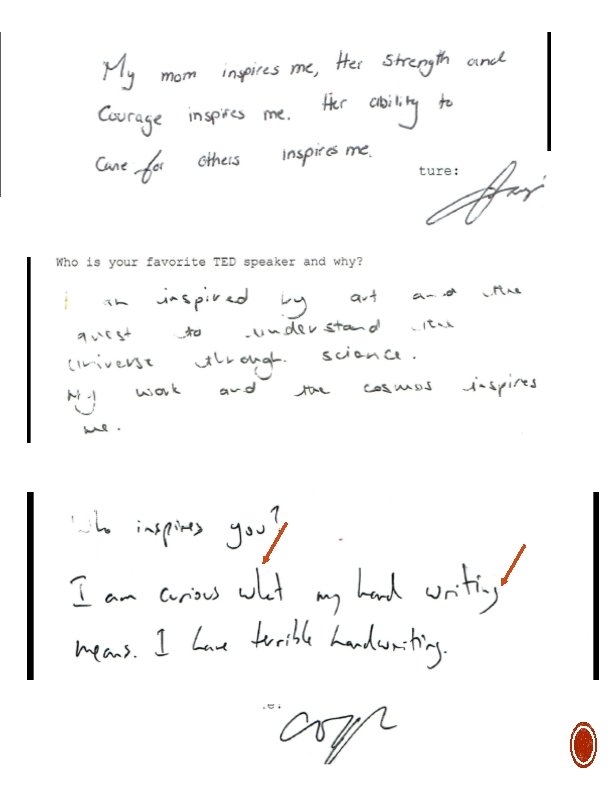 My mom inspires me, Her strength and
Courage inspires me. Her ability to
Care for others inspires me.
ture:
Who is your favorite TED speaker and why?
I am inspired by art and the
quest to understand the
Universe through science.
My work and the cosmos inspires
me.
Who inspires you?
I am curious what my hand writing
means. I have terrible handwriting.
e: